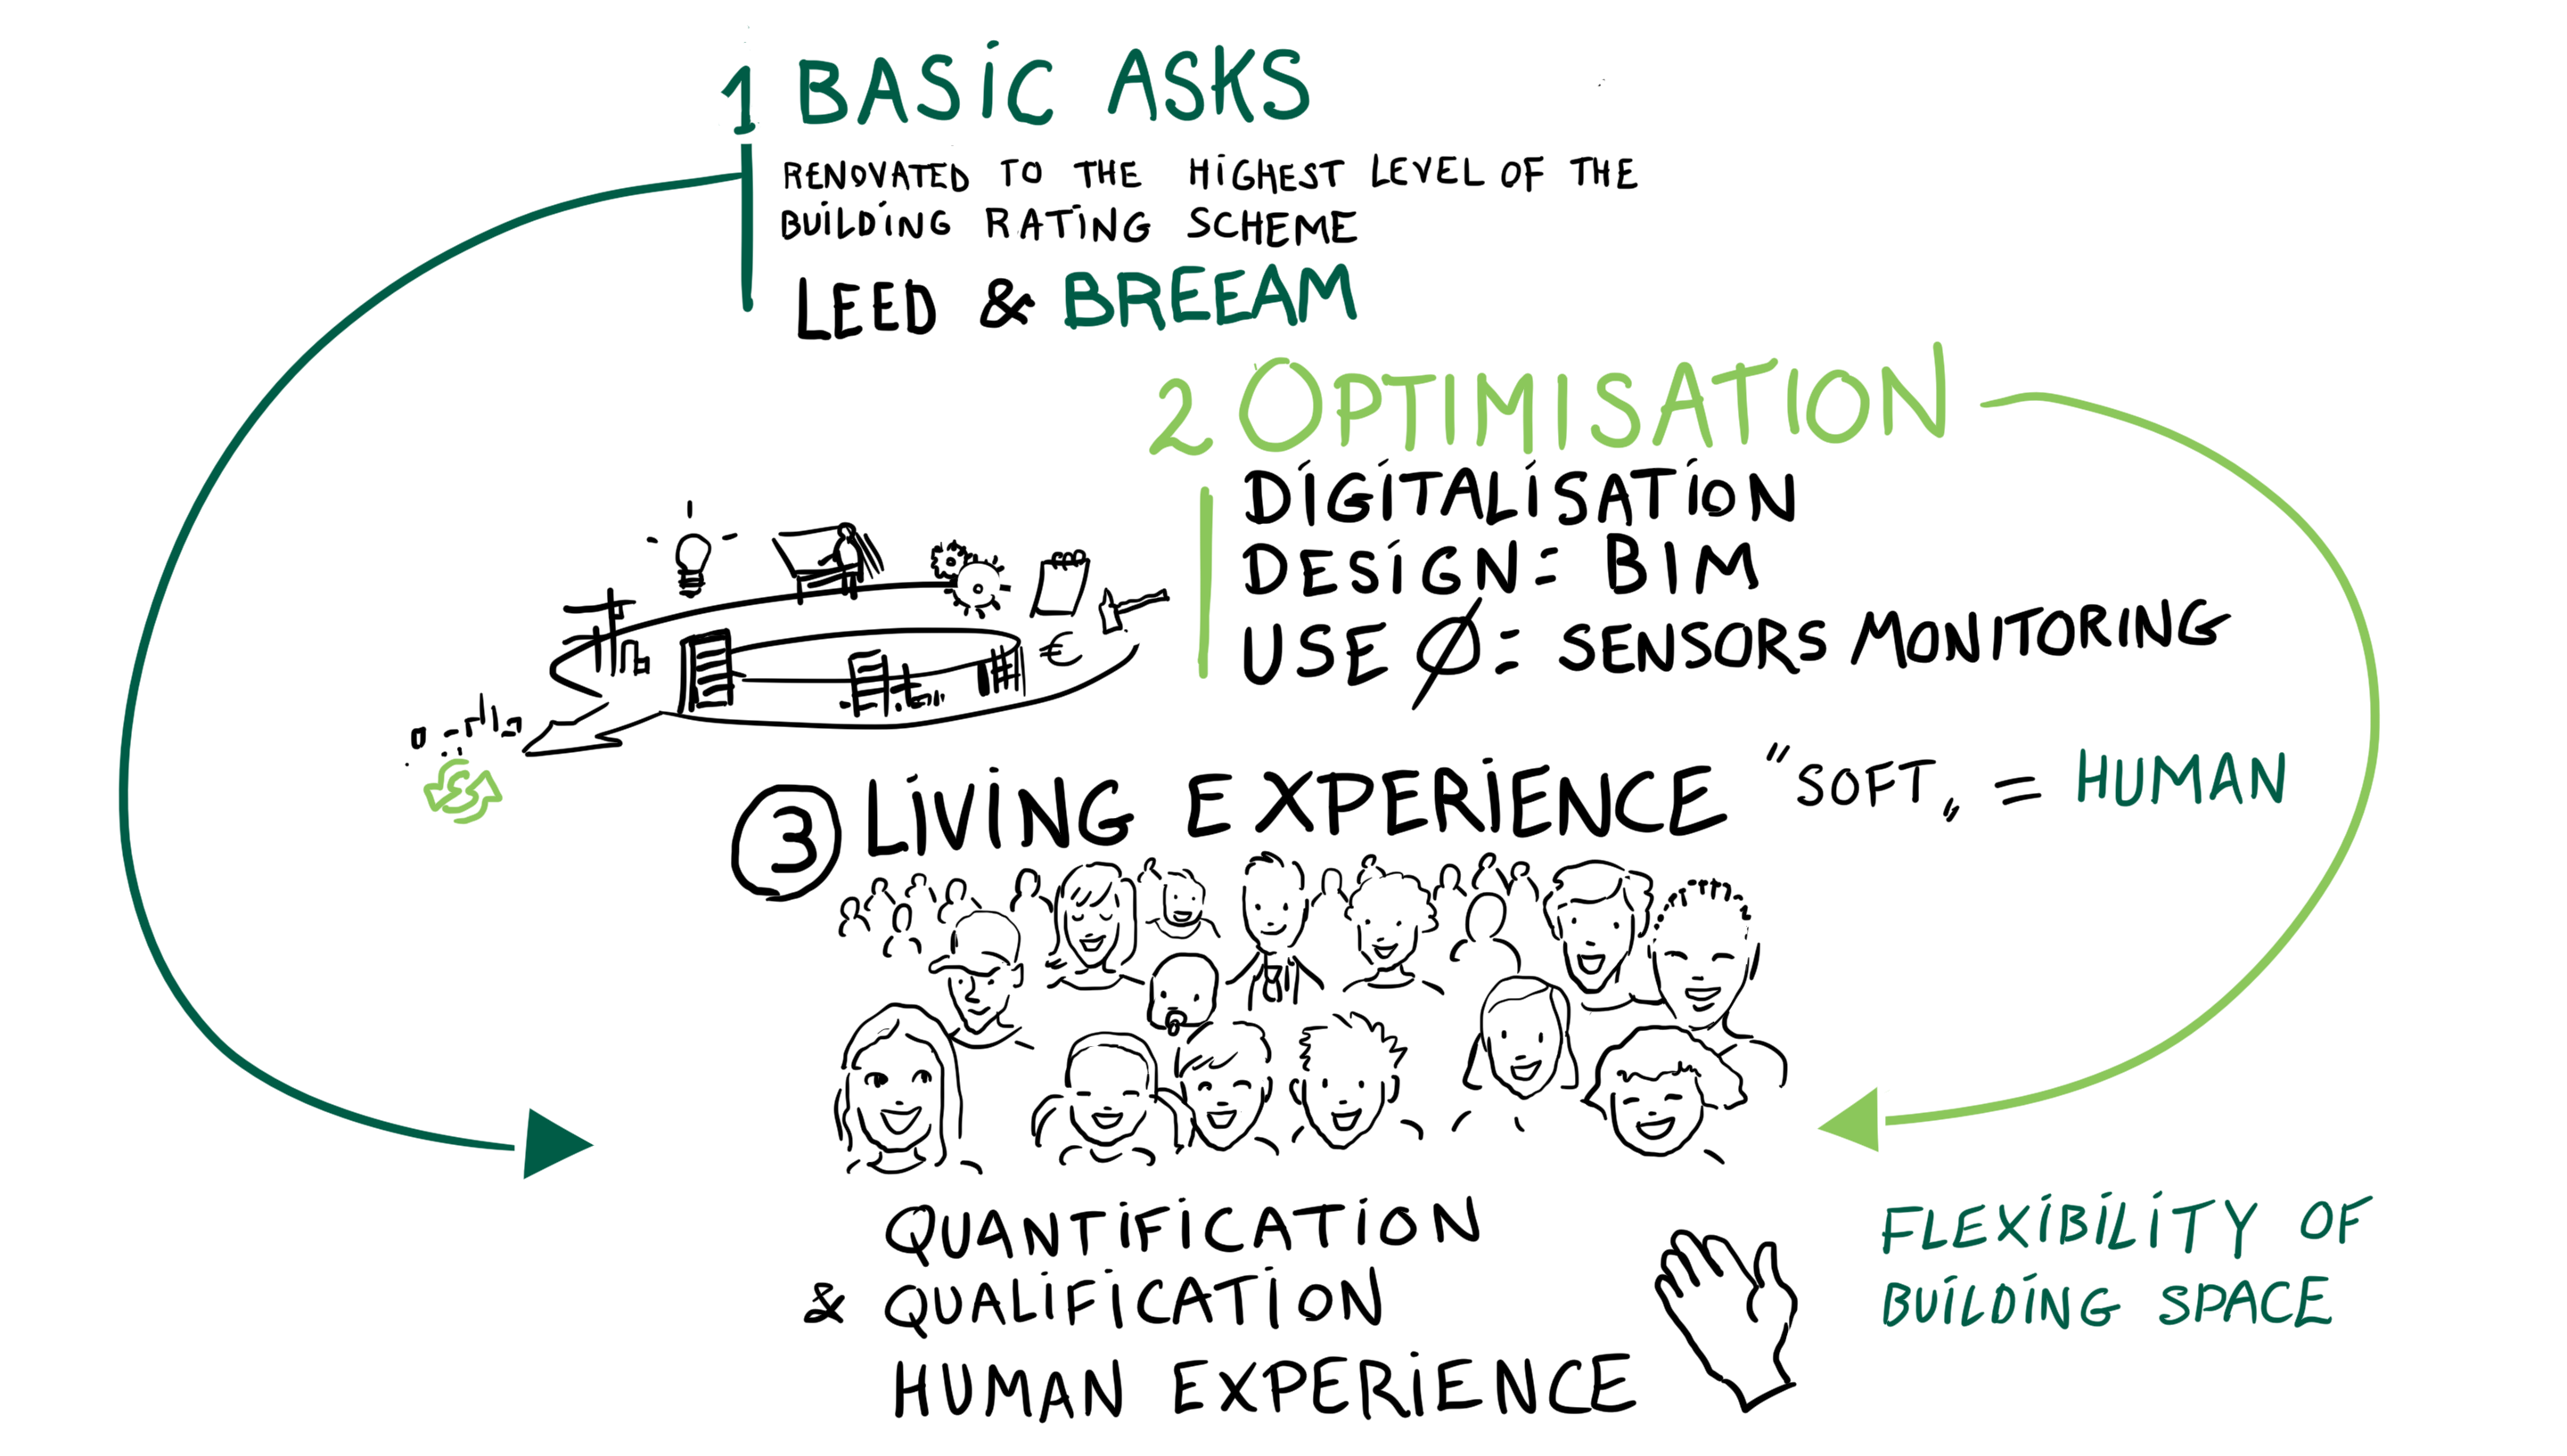 1 BASIC ASKS
RENOVATED TO THE HIGHEST LEVEL OF THE
BUILDING RATING SCHEME
LEED & BREEAM
2 OPTIMISATION
DIGITALISATION
DESIGN = BIM
USE Ø = SENSORS MONITORING
€
3 LIVING EXPERIENCE "SOFT" = HUMAN
QUANTIFICATION
& QUALIFICATION
HUMAN EXPERIENCE
FLEXIBILITY OF
BUILDING SPACE